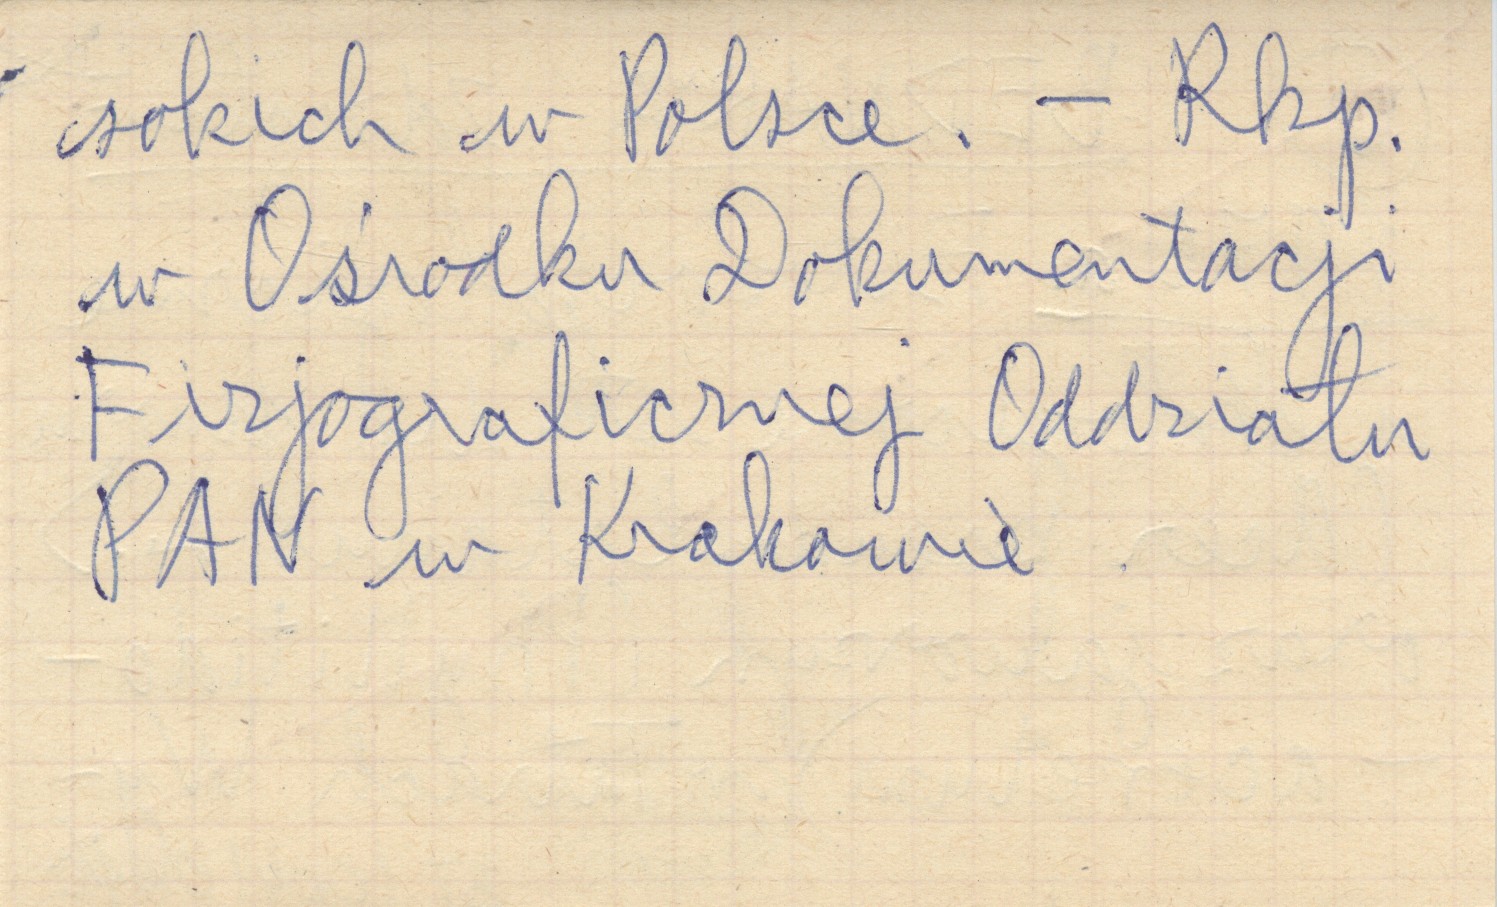 sokich w Polsce. — Rkp.
w Ośrodku Dokumentacji
Fizjograficznej Oddziału
PAN w Krakowie.